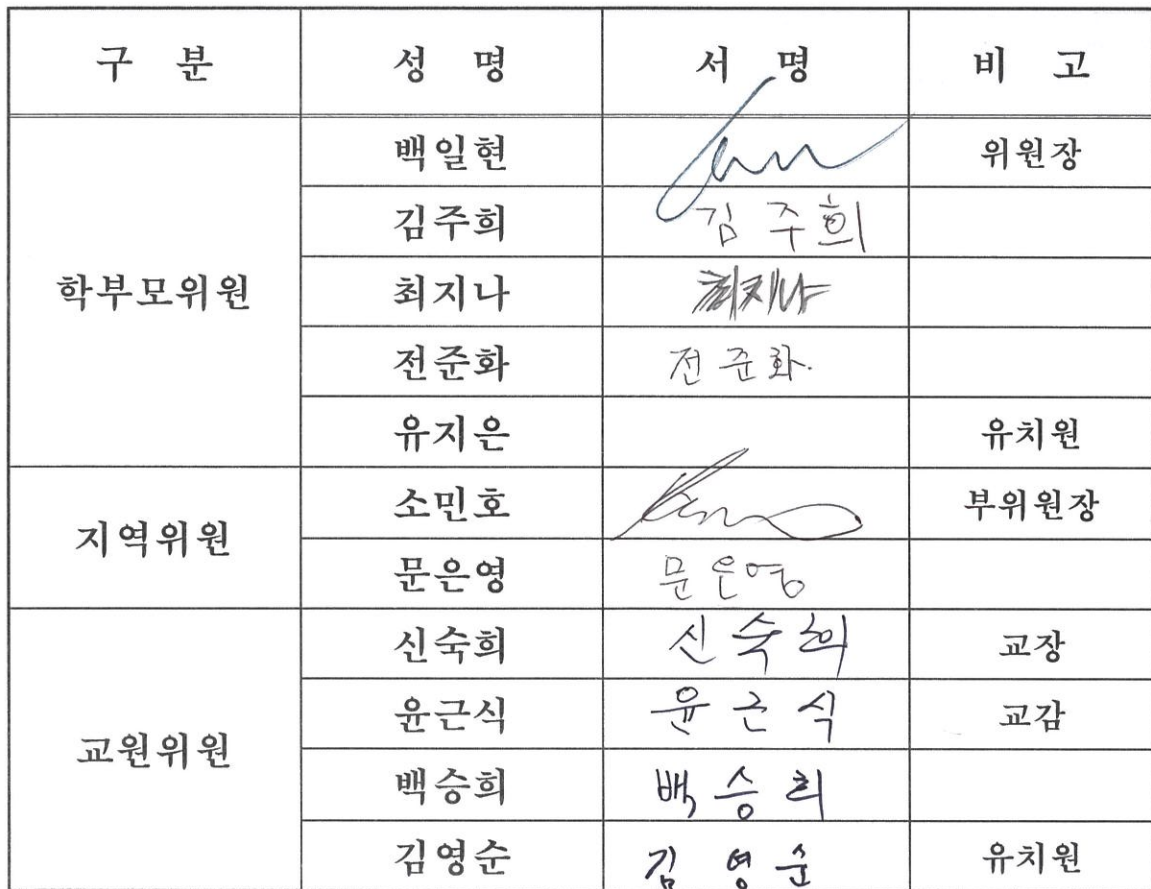 구 분 성 명 서 명 비 고
학부모위원 백일현 위원장
김주희 김주희
최지나 최지나
전준화 전준화.
유지은 유치원
지역위원 소민호 부위원장
문은영 문은영
교원위원 신숙희 신숙희 교장
윤근식 윤근식 교감
백승희 백승희
김영순 김영순 유치원